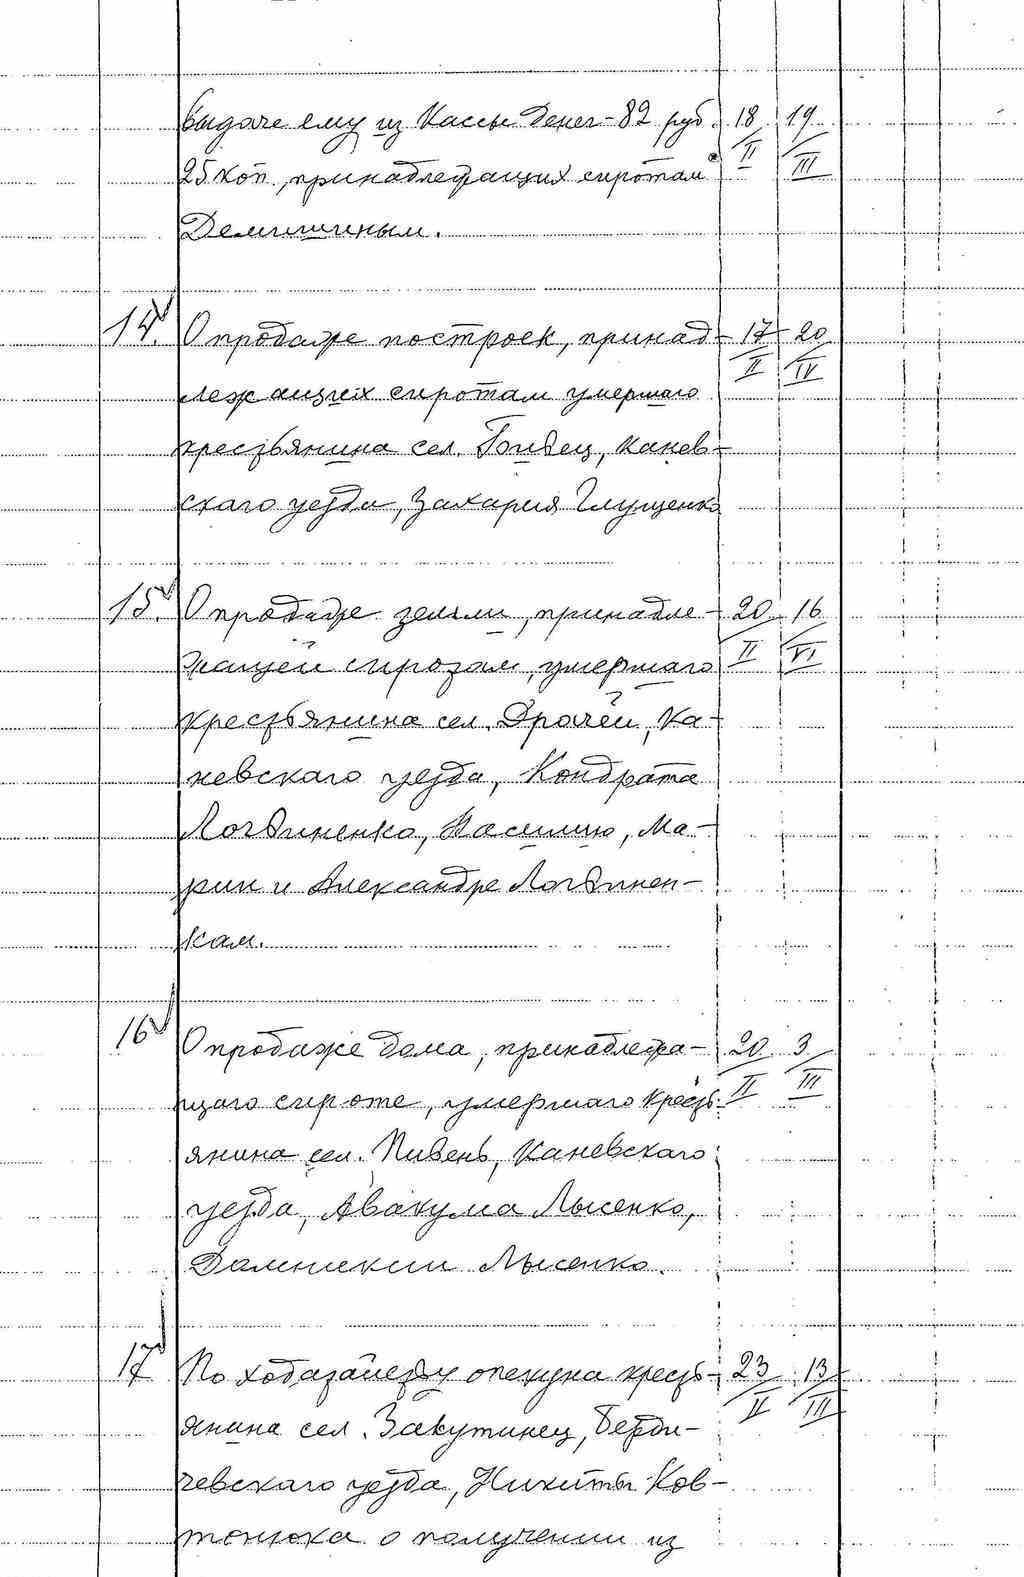 выдаче ему из Кассы денег - 82 руб. 18/II 19/III
25 коп., принадлежащих сиротам
Демишиным.
14. О продаже построек, принад- 17/II 20/IV
лежащих сиротам умершаго
крестьянина сел. Канев-
скаго уезда, Захария Глущенко
15. О продаже земли, принадле- 20/II 16/VI
жащей сиротам, умершаго
крестьянина сел. Драчей, Ка-
невскаго уезда, Кондрата
Логвиненко, Василию, Ма-
рии и Александре Логвинен-
кам.
16 О продаже дома, принадлежа- 20/II 3/III
щаго сироте, умершаго кресть-
янина сел. Пивень, Каневскаго
уезда, Авакума Лысенко,
Домникии Лысенко.
17 По ходатайству опекуна кресть- 23/II 13/III
янина сел. Закутинец, Берди-
чевскаго уезда, Никиты Ков-
тонюка о получении из